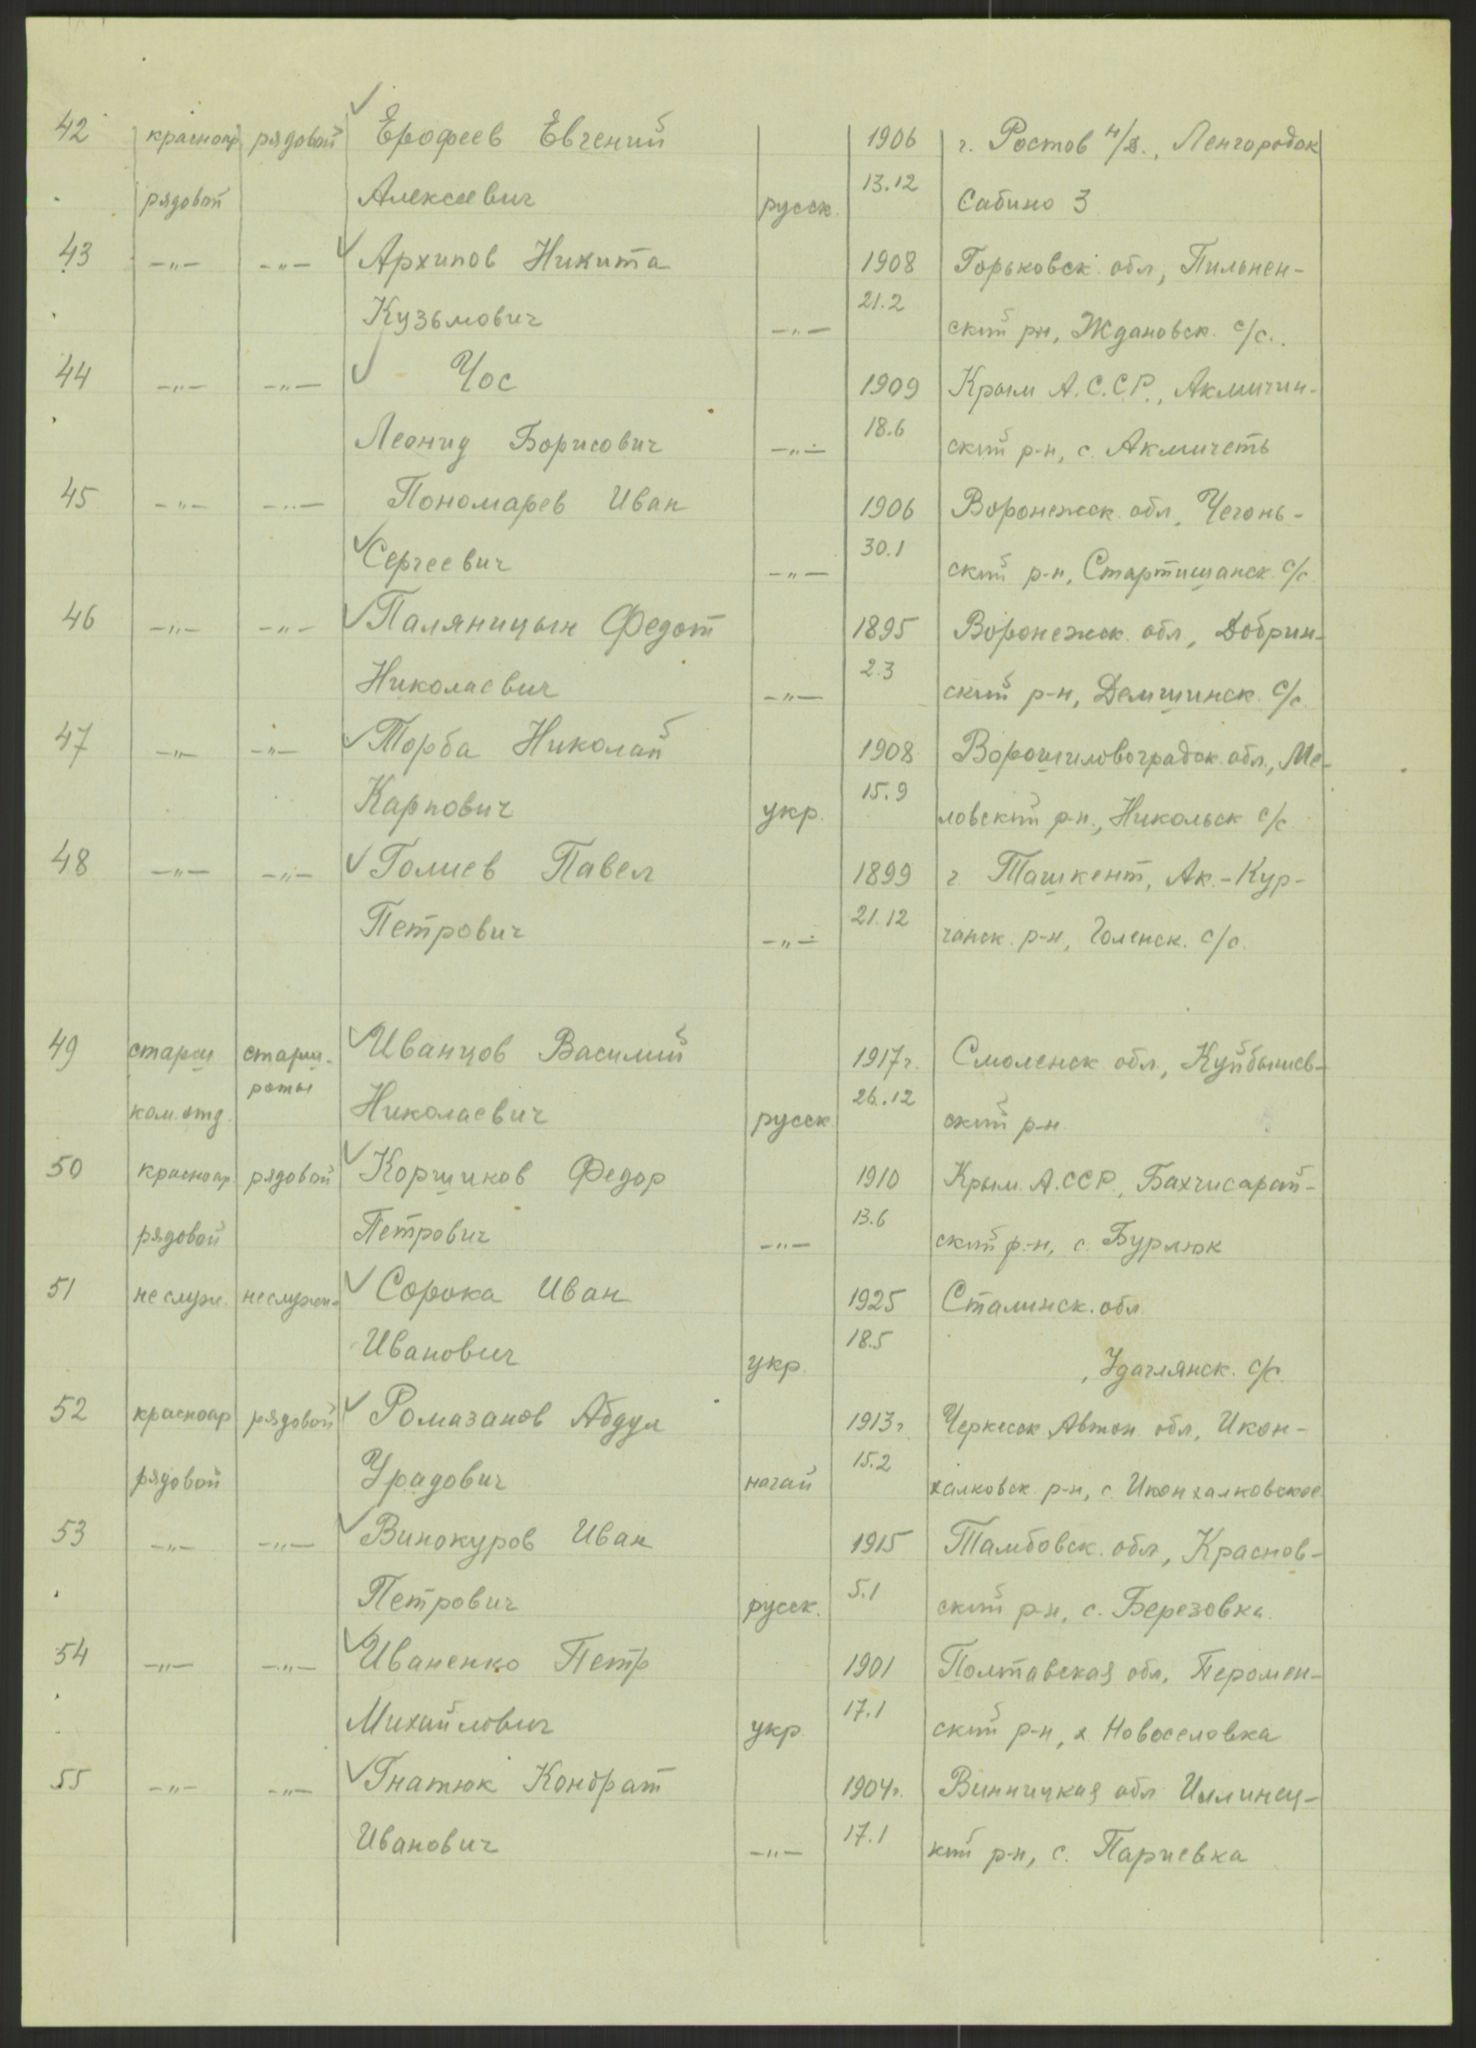 42 красноар рядовой Ерофеев Евгений 1906 г. Ростов н/д., Ленгородок
рядовой Алексеевич русск. 13.12 Сабино 3
43 —„— —„— Архипов Никита 1908 Горьковск. обл, Пильнен-
Кузьмович —„— 21.2 ский рн, Ждановск. с/с.
44 —„— —„— Чос 1909 Крым А.С.С.Р., Акмичин-
Леонид Борисович —„— 18.6 ский р-н, с. Акмичеть
45 —„— —„— Пономарев Иван 1906 Воронежск. обл,
Сергеевич —„— 30.1 ский р-н, с/с.
46 —„— —„— Паляницын Федот 1895 Воронежск. обл, Добрин-
Николаевич —„— 2.3 ский р-н, Демшинск. с/с.
47 —„— —„— Торба Николай 1908 Ворошиловоградск. обл., Ме-
Карпович укр. 15.9 ловский р-н., Никольск с/с
48 —„— —„— Голиев Павел 1899 г. Ташкент, Ак.-Кур-
Петрович —„— 21.12 ганск. р-н, Голенск. с/с.
49 старш старш. Иванцов Василий 1917г. Смоленск обл., Куйбышев-
роты
ком.отд. Николаевич русск 26.12 ский р-н
50 красноар. рядовой Коршиков Федор 1910 Крым. А.ССР., Бахчисарай-
рядовой Петрович —„— 13.6 ский р-н, с. Бурлюк
51 не служ. не служ- Сорока Иван 1925 Сталинск. обл
Иванович укр. 18.5 , Удачлянск. с/с.
52 красноар рядовой Ромазанов Абдул 1913г Черкесск Автон обл, Икон-
рядовой Урадович нагай 15.2 халковск. р-н, с. Иконхалковское
53 —„— —„— Винокуров Иван 1915 Тамбовск. обл, Краснов-
Петрович русск. 5.1 ский р-н, с. Березовка.
54 —„— —„— Иваненко Петр 1901 Полтавская обл,
Михайлович укр 17.1 ский р-н, х Новоселовка
55 —„— —„— Гнатюк Кондрат 1904г. Винницкая обл Иллинец-
Иванович —„— 17.1 кий р-н, с. Париевка